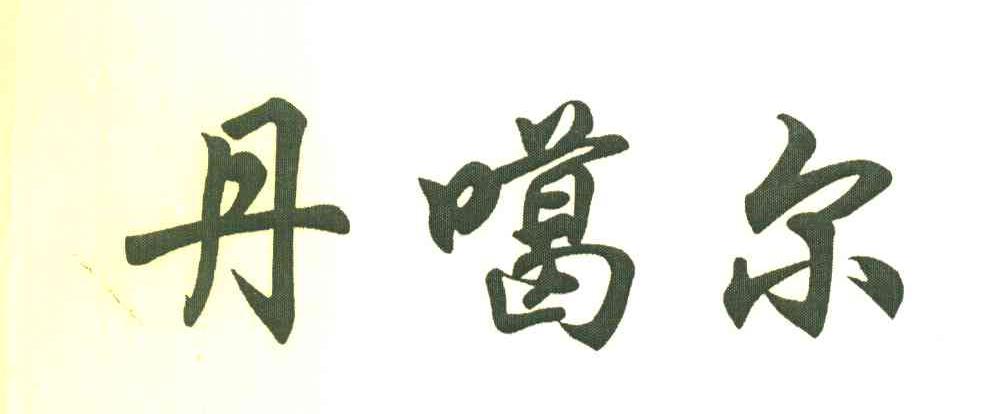 丹噶尔